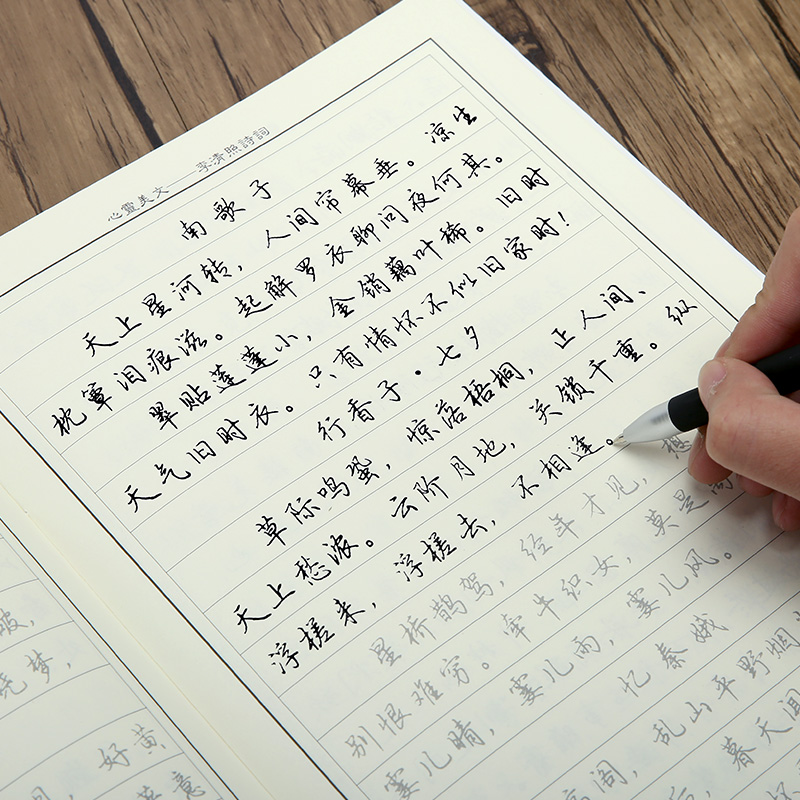 心靈美文——李清照詩詞
南歌子
天上星河转，人间帘幕垂。凉生
枕簟泪痕滋。起解罗衣聊问夜何其。
翠贴莲蓬小，金销藕叶稀。旧时
天气旧时衣。只有情怀不似旧家时！
行香子·七夕
草际鸣蛩，惊落梧桐，正人间、
天上愁浓。云阶月地，关锁千重。纵
浮槎来，浮槎去，不相逢。
星桥鹊驾，经年才见，想
别恨难穷。牵牛织女，莫是离
霎儿晴，霎儿雨，霎儿风。
忆秦娥
高阁，乱山平野烟
暮天闻
晓梦，
好黄
莫意